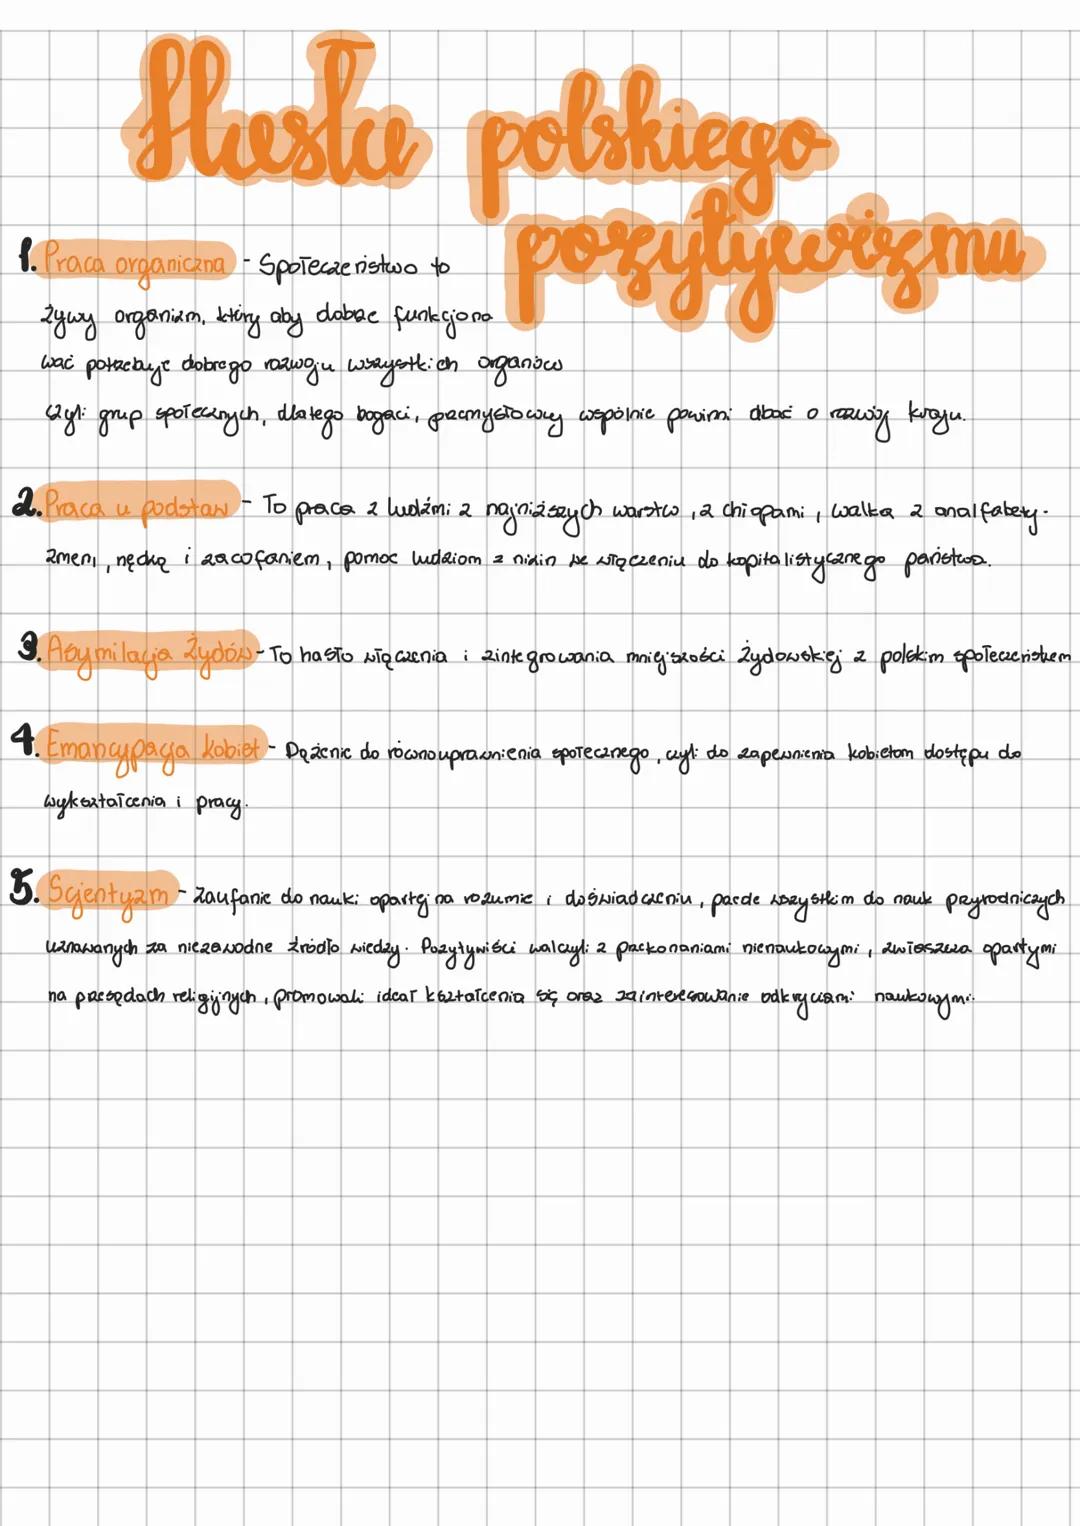 Hasła polskiego
pozytywizmu
1. Praca organiczna - Społeczeństwo to
żywy organizm, który aby dobrze funkcjono
wać potrzebuje dobrego rozwoju wszystkich organów
czyli grup społecznych, dlatego bogaci, przemysłowcy wspólnie powinni dbać o rozwój kraju.
2. Praca u podstaw - To praca z ludźmi z najniższych warstw, z chłopami, walka z analfabety-
zmem, nędzą i zacofaniem, pomoc ludziom z nizin we włączeniu do kapitalistycznego państwa.
3. Asymilacja Żydów - To hasło włączenia i zintegrowania mniejszości żydowskiej z polskim społeczeństwem
4. Emancypacja kobiet - Dążenie do równouprawnienia społecznego, czyli do zapewnienia kobietom dostępu do
wykształcenia i pracy.
5. Scjentyzm - Zaufanie do nauki opartej na rozumie i doświadczeniu, przede wszystkim do nauk przyrodniczych
uznawanych za niezawodne źródło wiedzy. Pozytywiści walczyli z przekonaniami nienaukowymi, zwłaszcza opartymi
na przesądach religijnych, promowali ideał kształcenia się oraz zainteresowanie odkryciami naukowymi.